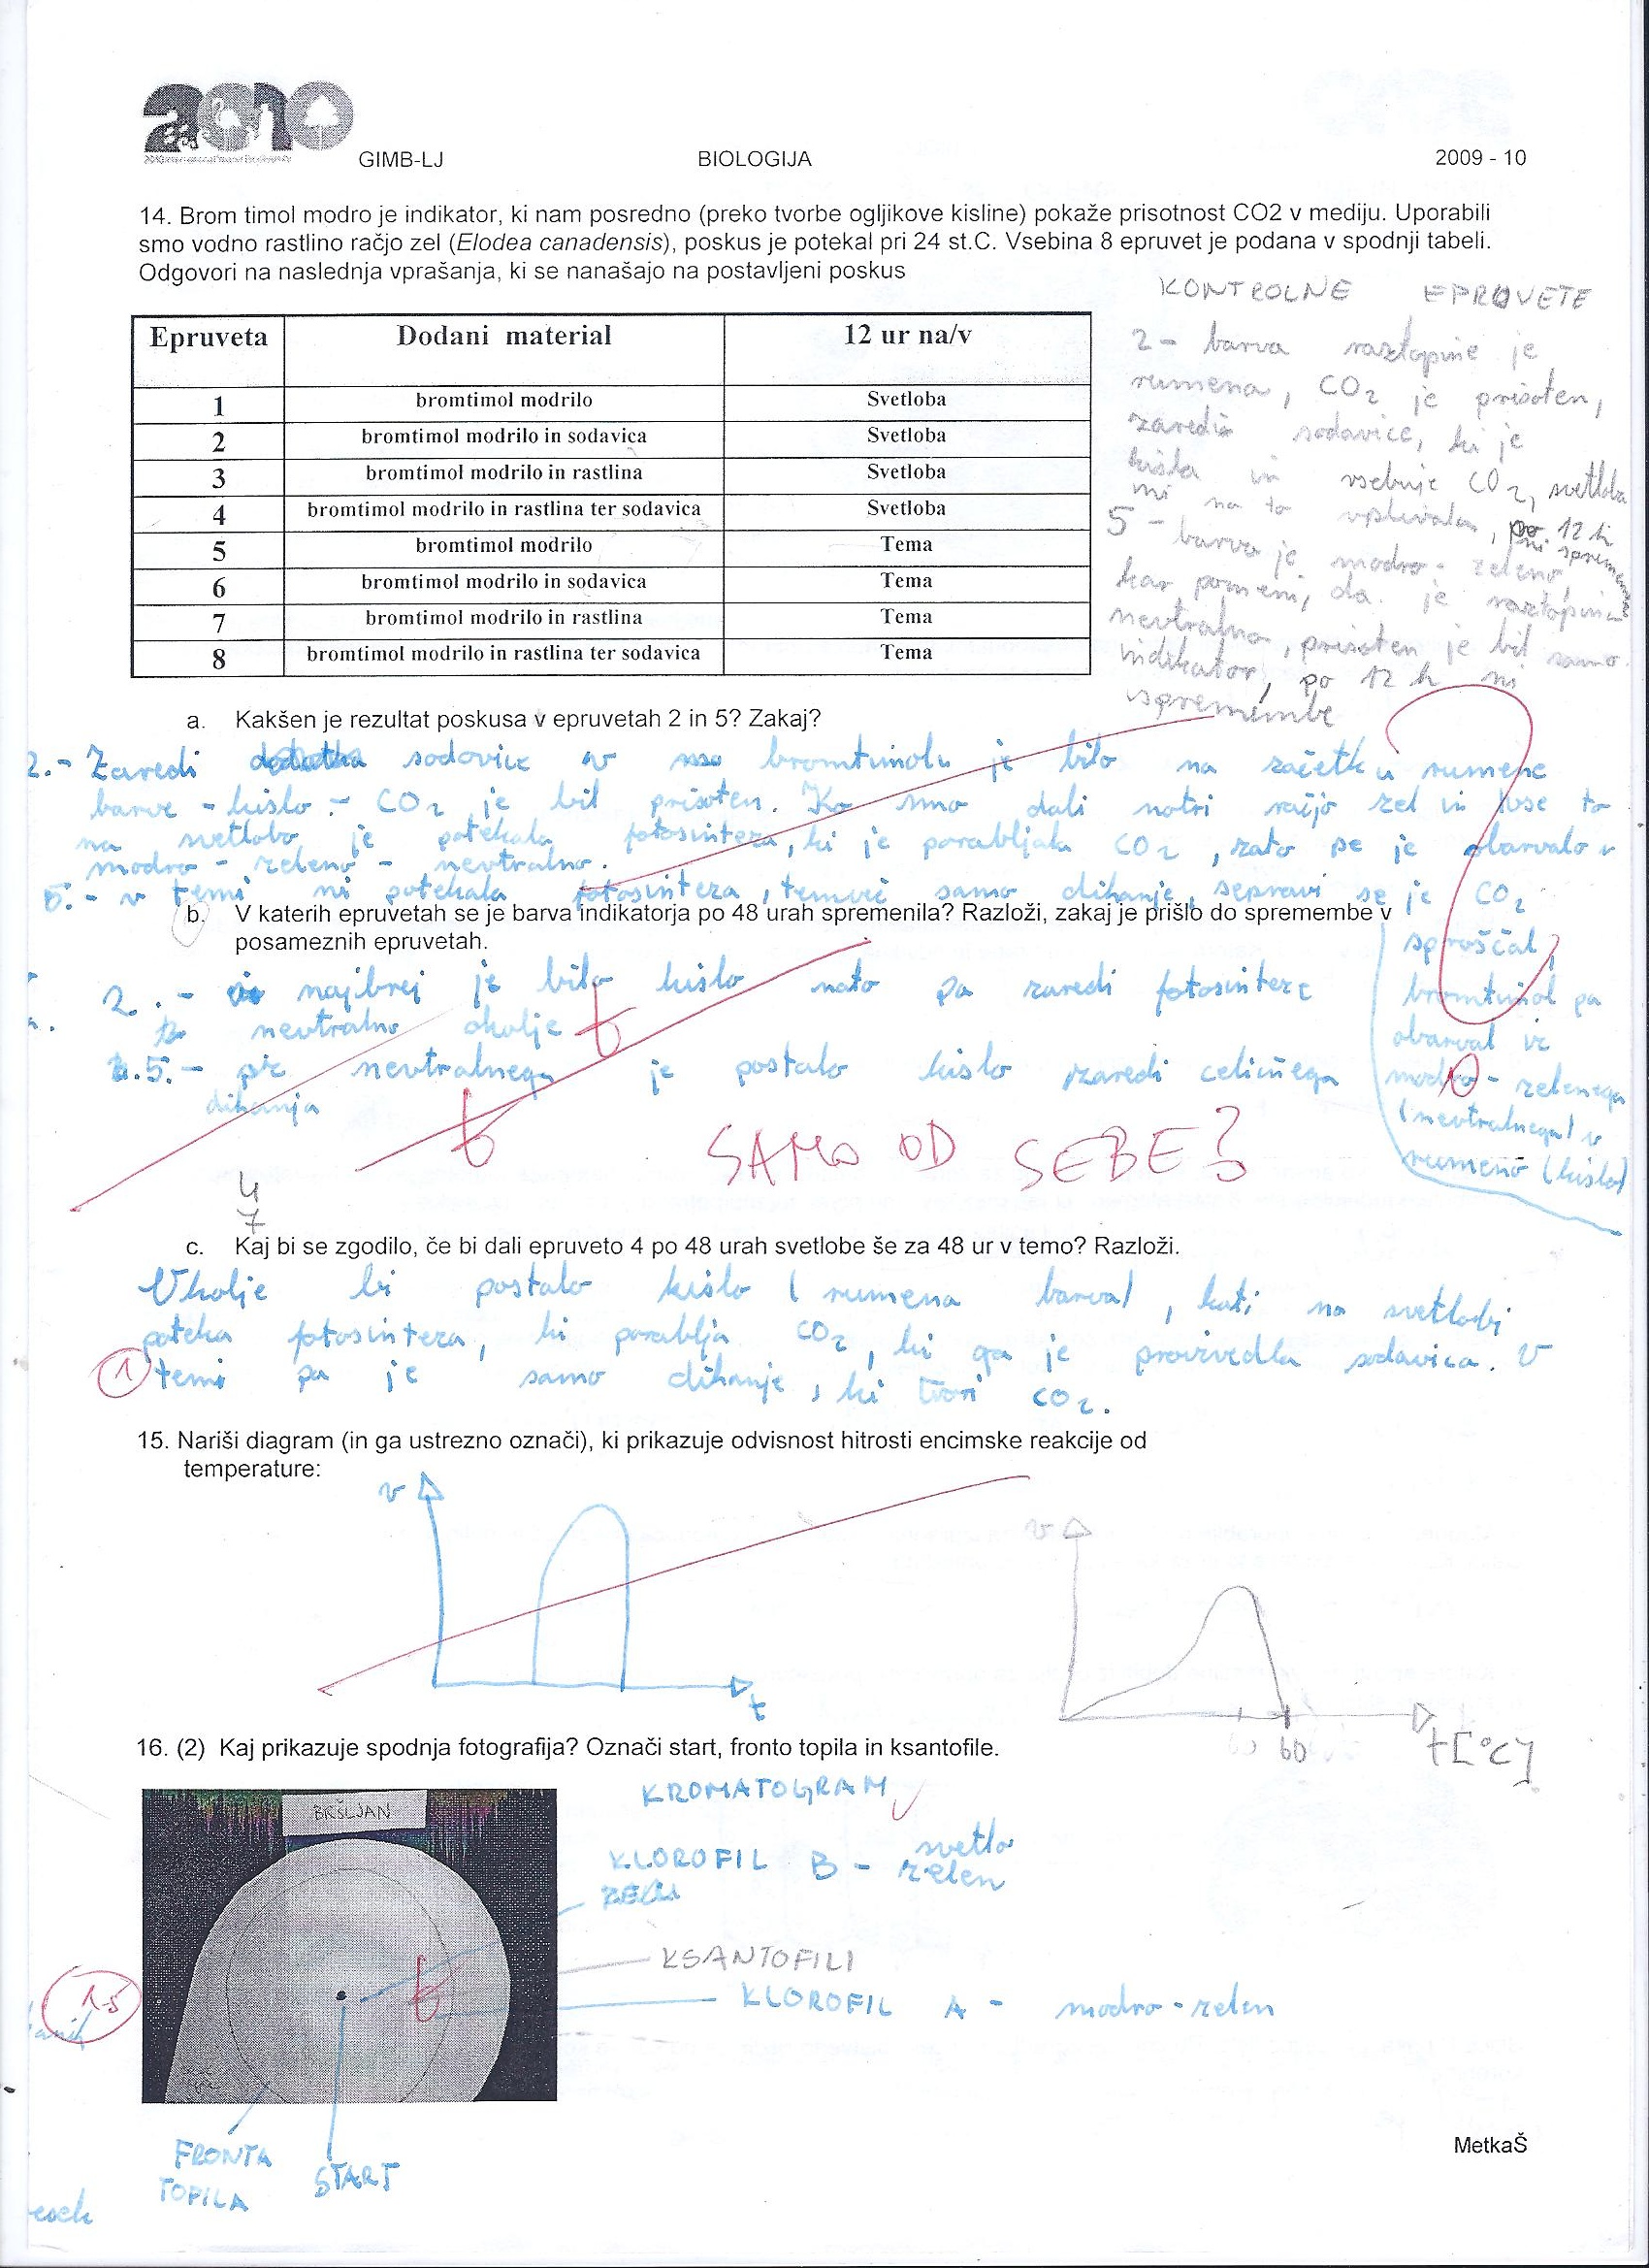 2010
GIMB-LJ BIOLOGIJA 2009 - 10
14. Brom timol modro je indikator, ki nam posredno (preko tvorbe ogljikove kisline) pokaže prisotnost CO2 v mediju. Uporabili
smo vodno rastlino račjo zel (Elodea canadensis), poskus je potekal pri 24 st.C. Vsebina 8 epruvet je podana v spodnji tabeli.
Odgovori na naslednja vprašanja, ki se nanašajo na postavljeni poskus
Epruveta Dodani material 12 ur na/v
1 bromtimol modrilo Svetloba
2 bromtimol modrilo in sodavica Svetloba
3 bromtimol modrilo in rastlina Svetloba
4 bromtimol modrilo in rastlina ter sodavica Svetloba
5 bromtimol modrilo Tema
6 bromtimol modrilo in sodavica Tema
7 bromtimol modrilo in rastlina Tema
8 bromtimol modrilo in rastlina ter sodavica Tema
KONTROLNE EPRUVETE
2 - barva raztopine je
rumena, CO2 je prisoten,
zaradi sodavice, ki je
kisla in vsebuje CO2, svetloba
ni na to vplivala, po 12 h
ni spremembe
5 - barva je modro - zelena,
kar pomeni, da je raztopina
nevtralna, prisoten je bil samo
indikator, po 12 h ni
spremembe
a. Kakšen je rezultat poskusa v epruvetah 2 in 5? Zakaj?
2.- Zaredi sodovice v bromtimolu je bilo na začetku rumene
barve - kislo - CO2 je bil prisoten. Ko smo dali notri račjo zel in vse to
na svetlobo je potekala fotosinteza, ki je porabljala CO2, zato se je obarvalo v
modro - zeleno - nevtralno.
5.- v temi ni potekala fotosinteza, temveč samo dihanje, sepravi se je CO2
sproščal,
bromtimol pa
obarval iz
modro - zelenega
(nevtralnega) v
rumeno (kislo)
b. V katerih epruvetah se je barva indikatorja po 48 urah spremenila? Razloži, zakaj je prišlo do spremembe v
posameznih epruvetah.
2. - najbrej je bilo kislo nato pa zaredi fotosinteze
nevtralno okolje
5.- iz nevtralnega je postalo kislo zaredi celičnega
dihanja
SAMO OD SEBE?
4
7
c. Kaj bi se zgodilo, če bi dali epruveto 4 po 48 urah svetlobe še za 48 ur v temo? Razloži.
Okolje bi postalo kislo (rumena barva), kati na svetlobi
poteka fotosinteza, ki porablja CO2, ki ga je proizvedla sodavica. V
1 temi pa je samo dihanje, ki tvori CO2.
15. Nariši diagram (in ga ustrezno označi), ki prikazuje odvisnost hitrosti encimske reakcije od
temperature:
v
t
v
60
t[°C]
16. (2) Kaj prikazuje spodnja fotografija? Označi start, fronto topila in ksantofile.
KROMATOGRAM
BRŠLJAN
KLOROFIL B - svetlo
zelen
KSANTOFILI
KLOROFIL A - modro - zelen
1.5
FRONTA
TOPILA
START
MetkaŠ